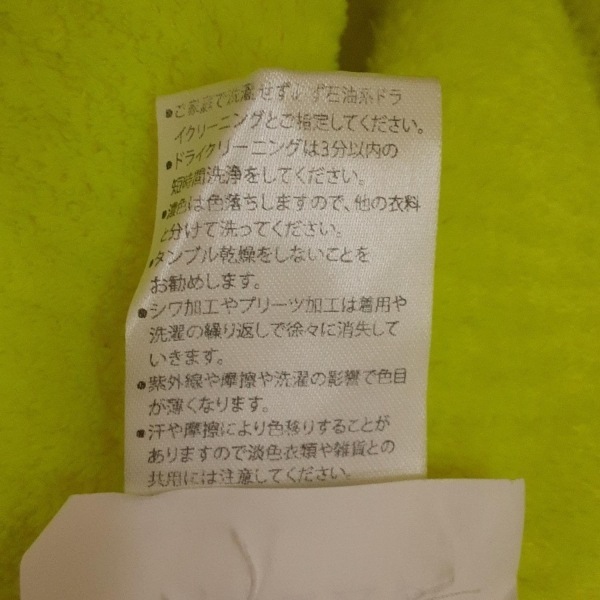 ●ご家庭で洗濯せず必ず石油系ドラ
イクリーニングとご指定してください。
●ドライクリーニングは3分以内の
短時間洗浄をしてください。
●濃色は色落ちしますので、他の衣料
と分けて洗ってください。
●タンブル乾燥をしないことを
お勧めします。
●シワ加工やプリーツ加工は着用や
洗濯の繰り返しで徐々に消失して
いきます。
●紫外線や摩擦や洗濯の影響で色目
が薄くなります。
●汗や摩擦により色移りすることが
ありますので淡色衣類や雑貨との
共用には注意してください。